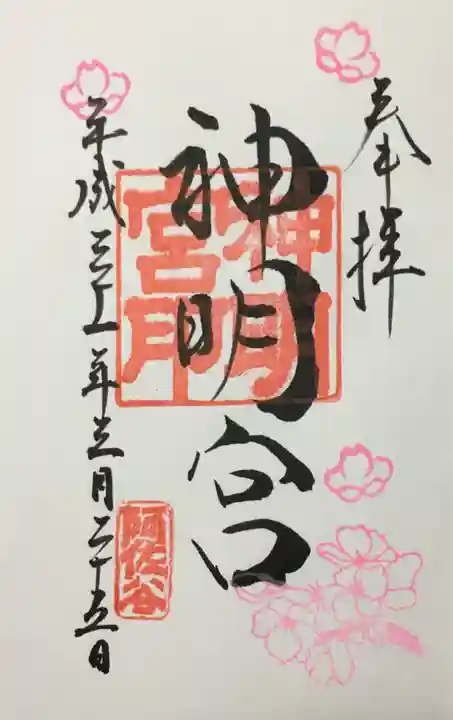 奉拝
神明宮
神明
宮印
平成三十一年三月二十五日
阿佐谷